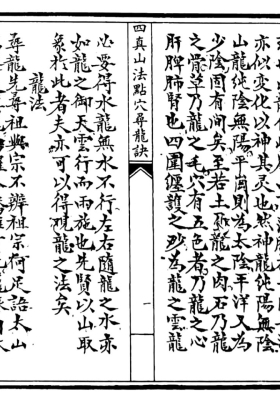 亦以變化以神其灵也然神龍純陽無陰
山龍純陰無陽平崗則為太陰平洋又為
少陰固有间矣至若土砂龍之肉石乃龍
之骨草乃龍之毛穴有五色者乃龍之心
肝脾肺腎也四圍纒護之砂為龍之雲龍
四真山法點穴尋龍訣
一
必要得水龍無水不行左右隨龍之水亦
如龍之御天雲行而雨施也先賢以山取
象於此者夫亦可以得觀龍之法矣
龍法
尋龍先尋祖與宗不辨祖宗何足語太山